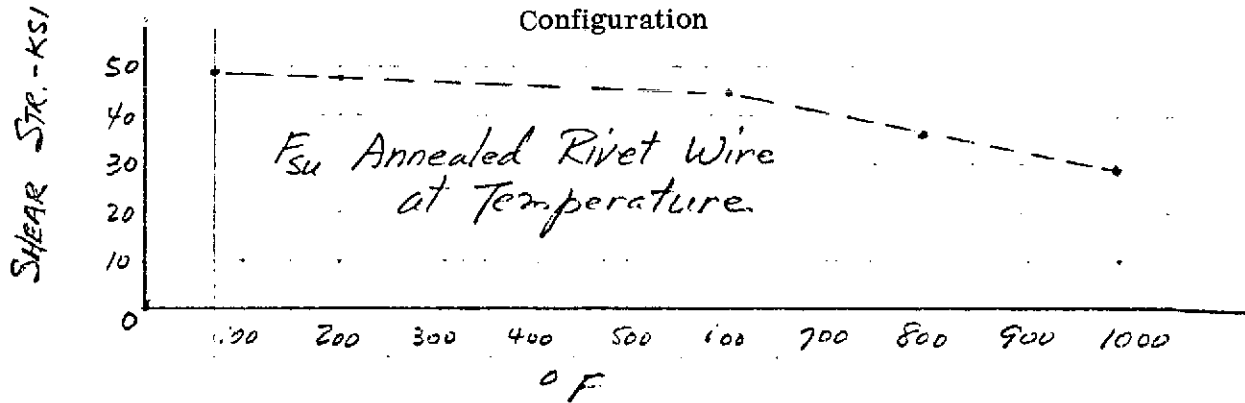 Configuration
SHEAR STR. - KSI
50
40
30
20
10
0
F_su Annealed Rivet Wire
at Temperature
100 200 300 400 500 600 700 800 900 1000
° F